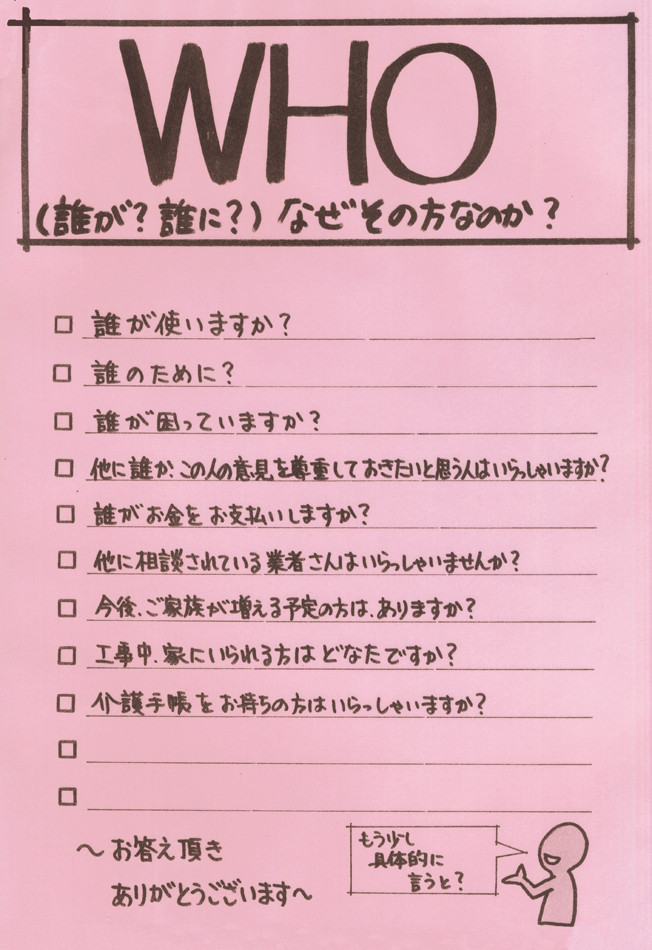 WHO
(誰が？誰に？)なぜその方なのか？
□ 誰が使いますか？
□ 誰のために？
□ 誰が困っていますか？
□ 他に誰か、この人の意見を尊重しておきたいと思う人はいらっしゃいますか？
□ 誰がお金をお支払いしますか？
□ 他に相談されている業者さんはいらっしゃいませんか？
□ 今後、ご家族が増える予定の方は、ありますか？
□ 工事中、家にいられる方はどなたですか？
□ 介護手帳をお持ちの方はいらっしゃいますか？
□
□
～お答え頂き
ありがとうございます～
もう少し
具体的に
言うと？